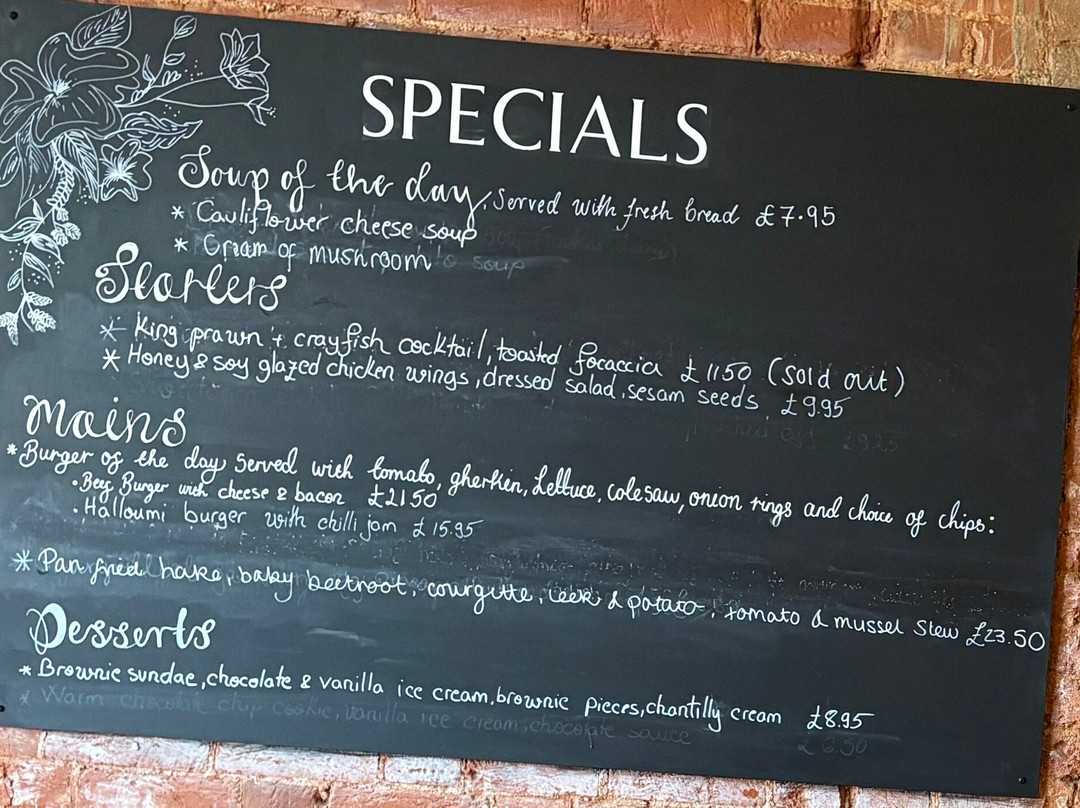 SPECIALS
Soup of the day, Served with fresh bread £7.95
* Cauliflower cheese soup
* Cream of mushroom
soup
Starters
* King prawn + crayfish cocktail, toasted focaccia £11.50 (sold out)
* Honey & soy glazed chicken wings, dressed salad, sesam seeds £9.95
egg £9.25
Mains
* Burger of the day served with tomato, gherkin, Lettuce, coleslaw, onion rings and choice of chips:
• Beef Burger with cheese & bacon £21.50
• Halloumi burger with chilli jam £15.95
* Pan fried hake, baby beetroot, courgette, leek & potato, tomato & mussel stew £23.50
Desserts
* Brownie sundae, chocolate & vanilla ice cream, brownie pieces, chantilly cream £8.95
* Warm chocolate chip cookie, vanilla ice cream, chocolate sauce £6.50